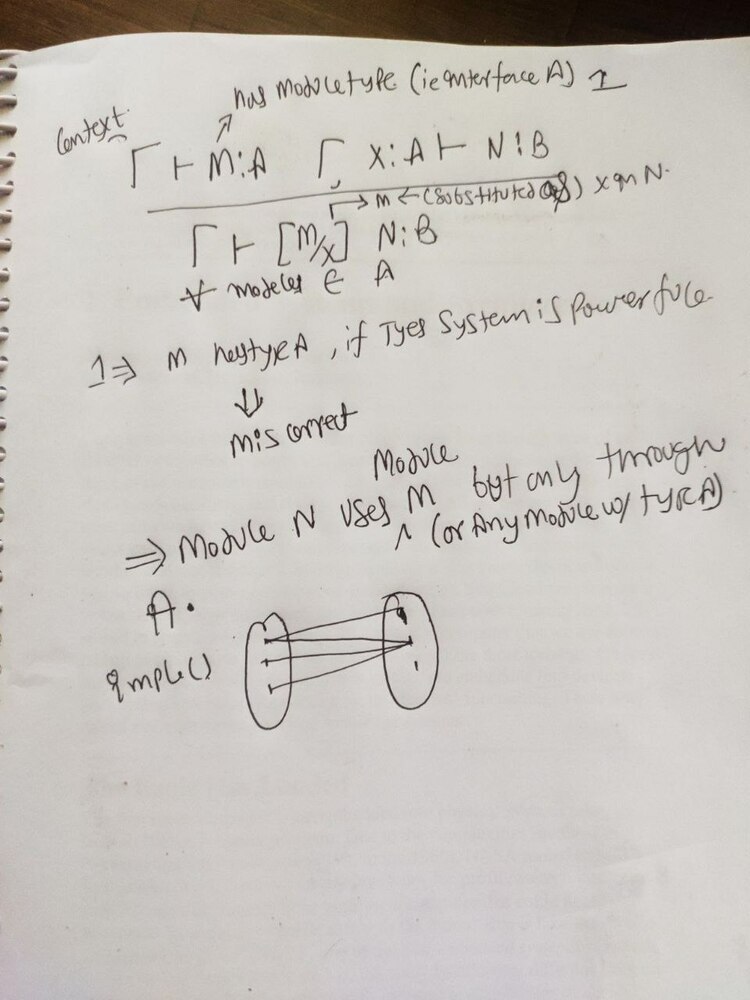 has module type (ie interface A) 1
Context
Γ ⊢ M:A   Γ, X:A ⊢ N:B
→ M ← (substituted as) x in N.
Γ ⊢ [M/X] N:B
∀ modeles ∈ A
1 ⇒ M hastype A, if Types System is Powerfule
⇓
M is correct
Module
⇒ Module N uses ^ M but only through
(or Any module w/ type A)
A.
imple()